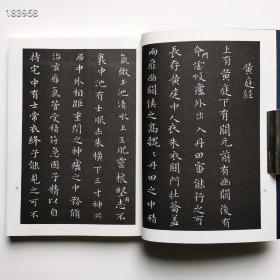 183958
黄庭經
上有黄庭下有關元前有幽闕後有
命門噓吸廬外出入丹田審能行之可
長存黄庭中人衣朱衣關門壯籥蓋
兩扉幽闕俠之高魏魏丹田之中精
氣微玉池清水上生肥靈根堅志不
衰中池有士服赤朱橫下三寸神所
居中外相距重閉之神廬之中務脩
治玄癕氣管受精符急固子精以自
持宅中有士常衣絳子能見之可不